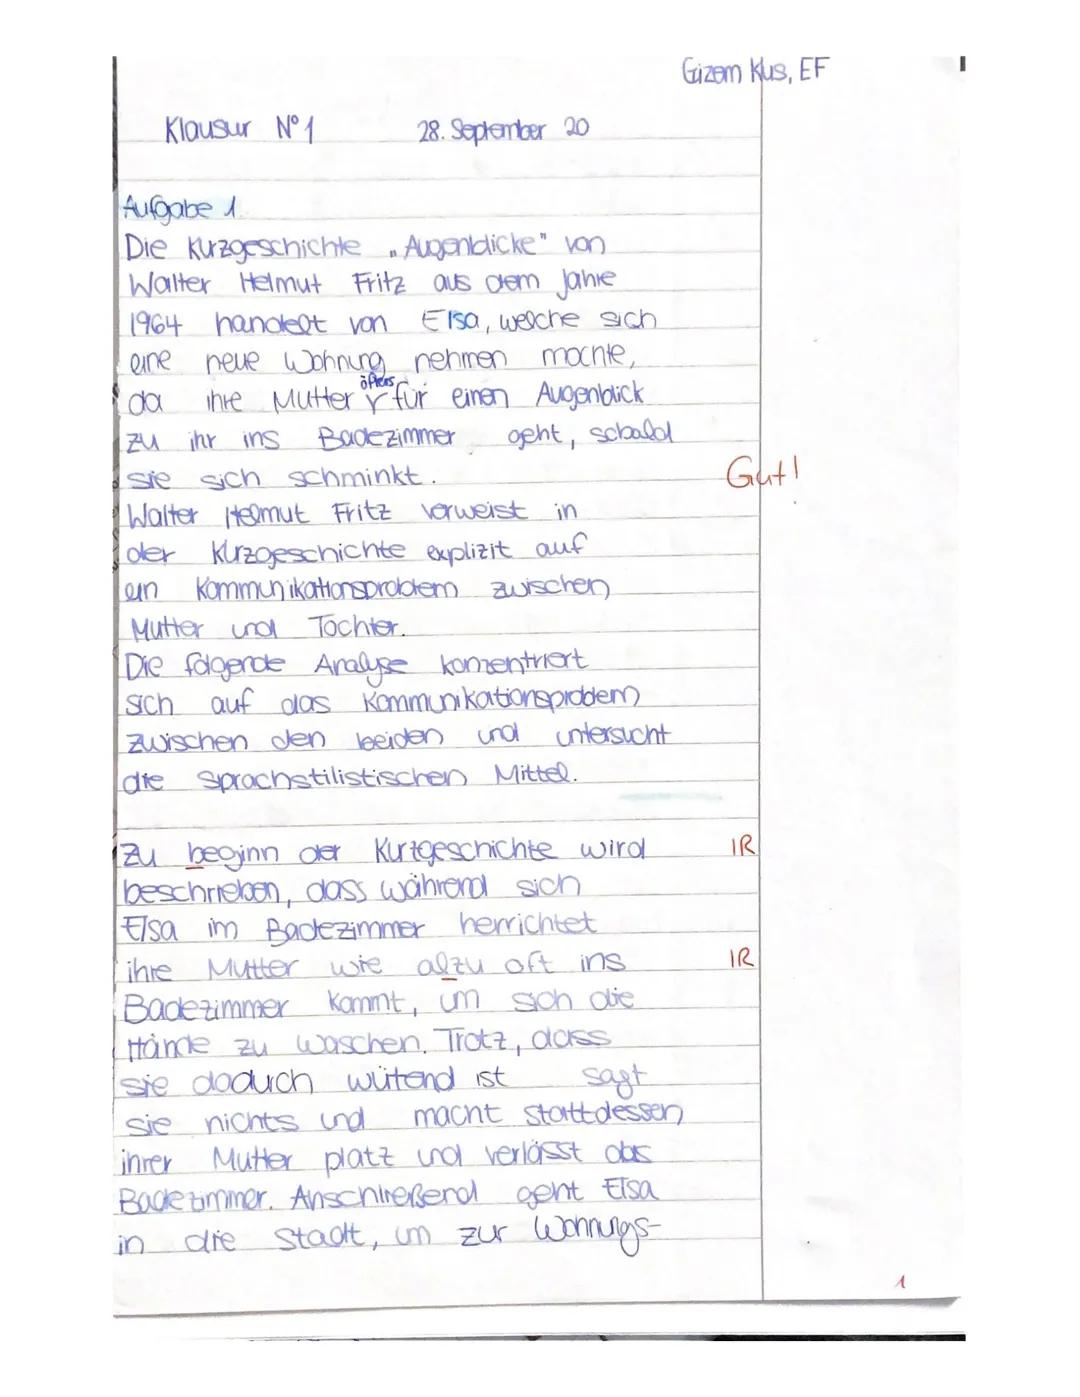 Gizem Kus, EF
Klausur N°1 28. September 20
Aufgabe 1.
Die Kurzgeschichte „Augenblicke" von
Walter Helmut Fritz aus dem Jahre
1964 handelt von Elsa, welche sich
eine neue Wohnung nehmen möchte,
da ihre Mutter öfters für einen Augenblick
zu ihr ins Badezimmer geht, sobald
sie sich schminkt. Gut!
Walter Helmut Fritz verweist in
der Kurzgeschichte explizit auf
ein Kommunikationsproblem zwischen
Mutter und Tochter.
Die folgende Analyse konzentriert
sich auf das Kommunikationsproblem
zwischen den beiden und untersucht
die sprachstilistischen Mittel.
Zu beginn der Kurtgeschichte wird IR
beschrieben, dass während sich
Elsa im Badezimmer herrichtet
ihre Mutter wie alzu oft ins IR
Badezimmer kommt, um sich die
Hände zu waschen. Trotz, dass
sie dadurch wütend ist sagt
sie nichts und macht stattdessen
ihrer Mutter platz und verlässt das
Badezimmer. Anschließend geht Elsa
in die Stadt, um zur Wohnungs-
1